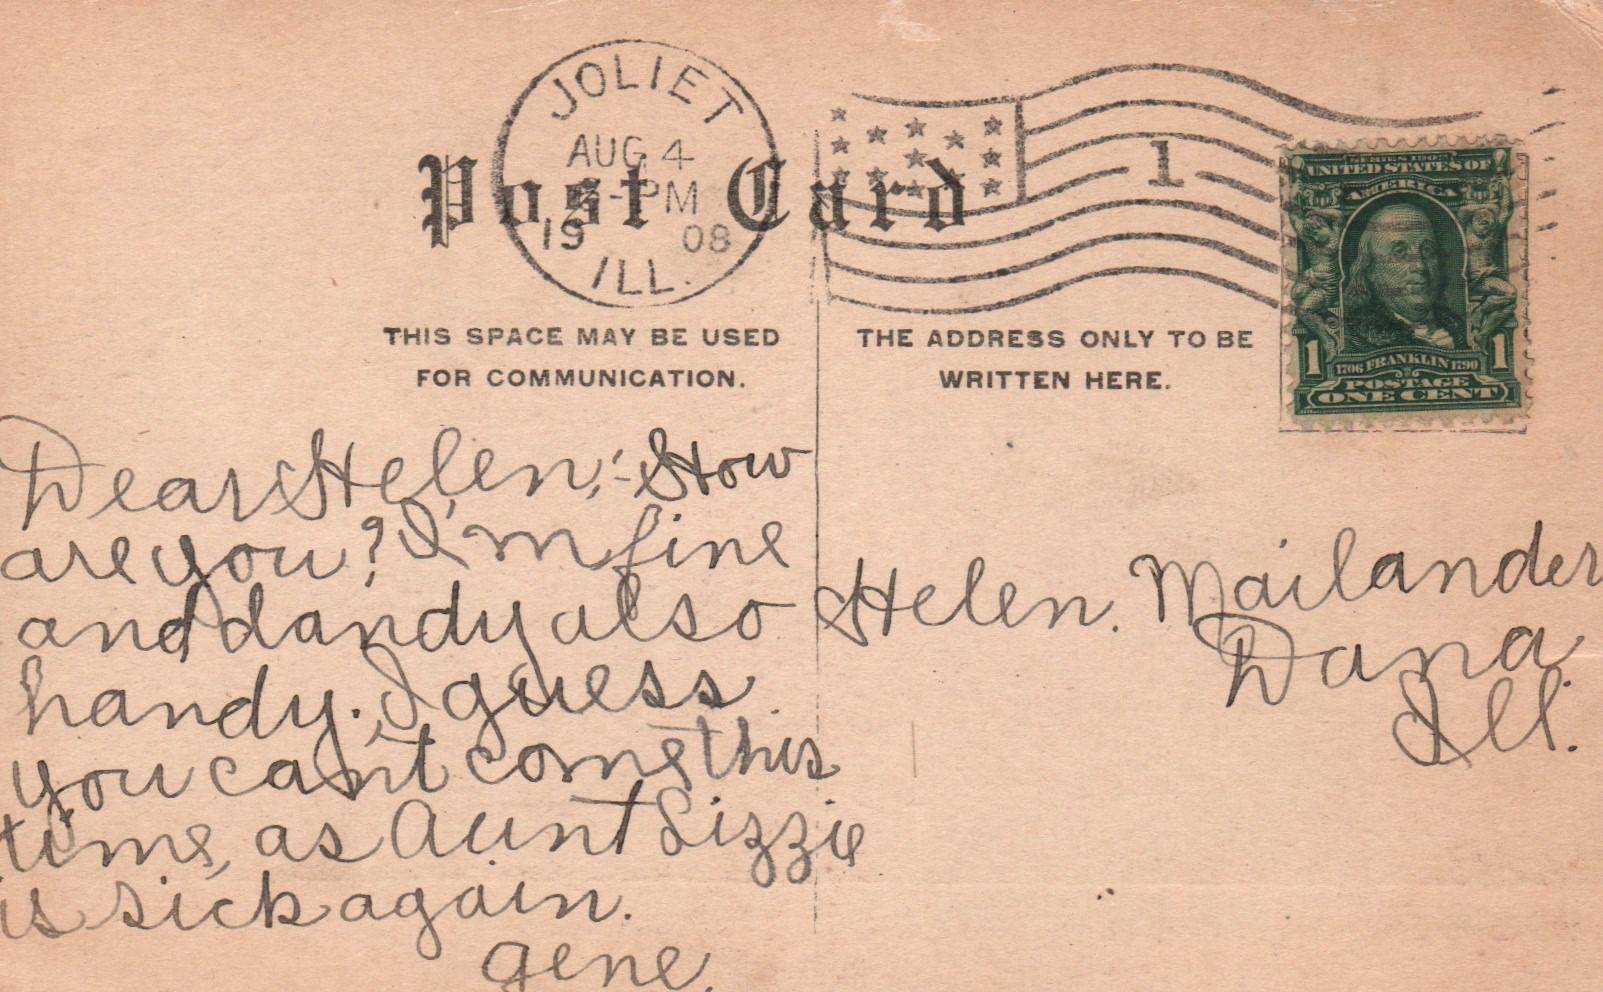 JOLIET
AUG 4
-PM
19 08
ILL.
1
Post Card
SERIES 1902
UNITED STATES OF
AMERICA
1 1706 FRANKLIN 1790 1
POSTAGE
ONE CENT
THIS SPACE MAY BE USED
FOR COMMUNICATION.
THE ADDRESS ONLY TO BE
WRITTEN HERE.
Dear Helen,:- How
are you? I'm fine
and dandy also
handy. I guess
you can't come this
time, as Aunt Lizzie
is sick again.
Gene.
Helen. Mailander
Dana.
Ill.